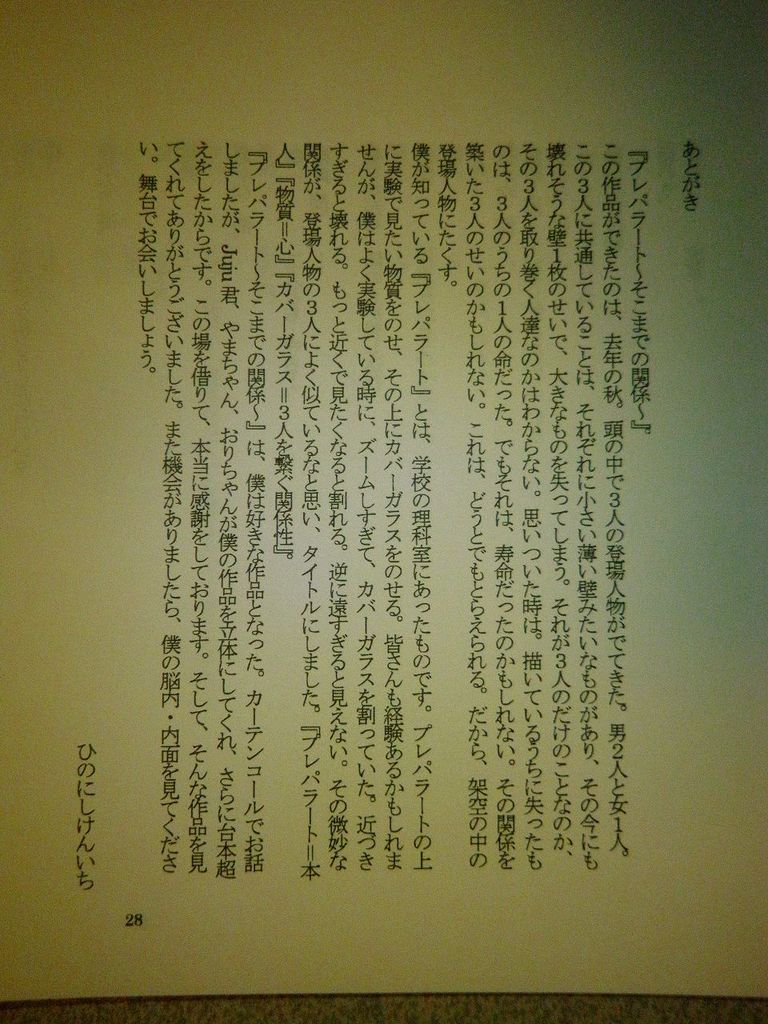 あとがき
『プレパラート〜そこまでの関係〜』。
この作品ができたのは、去年の秋。頭の中で３人の登場人物がでてきた。男２人と女１人。
この３人に共通していることは、それぞれに小さい薄い壁みたいなものがあり、その今にも
壊れそうな壁１枚のせいで、大きなものを失ってしまう。それが３人のだけのことなのか、
その３人を取り巻く人達なのかはわからない。思いついた時は。描いているうちに失ったも
のは、３人のうちの１人の命だった。でもそれは、寿命だったのかもしれない。その関係を
築いた３人のせいのかもしれない。これは、どうとでもとらえられる。だから、架空の中の
登場人物にたくす。
僕が知っている『プレパラート』とは、学校の理科室にあったものです。プレパラートの上
に実験で見たい物質をのせ、その上にカバーガラスをのせる。皆さんも経験あるかもしれま
せんが、僕はよく実験している時に、ズームしすぎて、カバーガラスを割っていた。近づき
すぎると壊れる。もっと近くで見たくなると割れる。逆に遠すぎると見えない。その微妙な
関係が、登場人物の３人によく似ているなと思い、タイトルにしました。『プレパラート＝本
人』『物質＝心』『カバーガラス＝３人を繋ぐ関係性』。
『プレパラート〜そこまでの関係〜』は、僕は好きな作品となった。カーテンコールでお話
しましたが、Juju 君、やまちゃん、おりちゃんが僕の作品を立体にしてくれ、さらに台本超
えをしたからです。この場を借りて、本当に感謝をしております。そして、そんな作品を見
てくれてありがとうございました。また機会がありましたら、僕の脳内・内面を見てくださ
い。舞台でお会いしましょう。
ひのにしけんいち
28